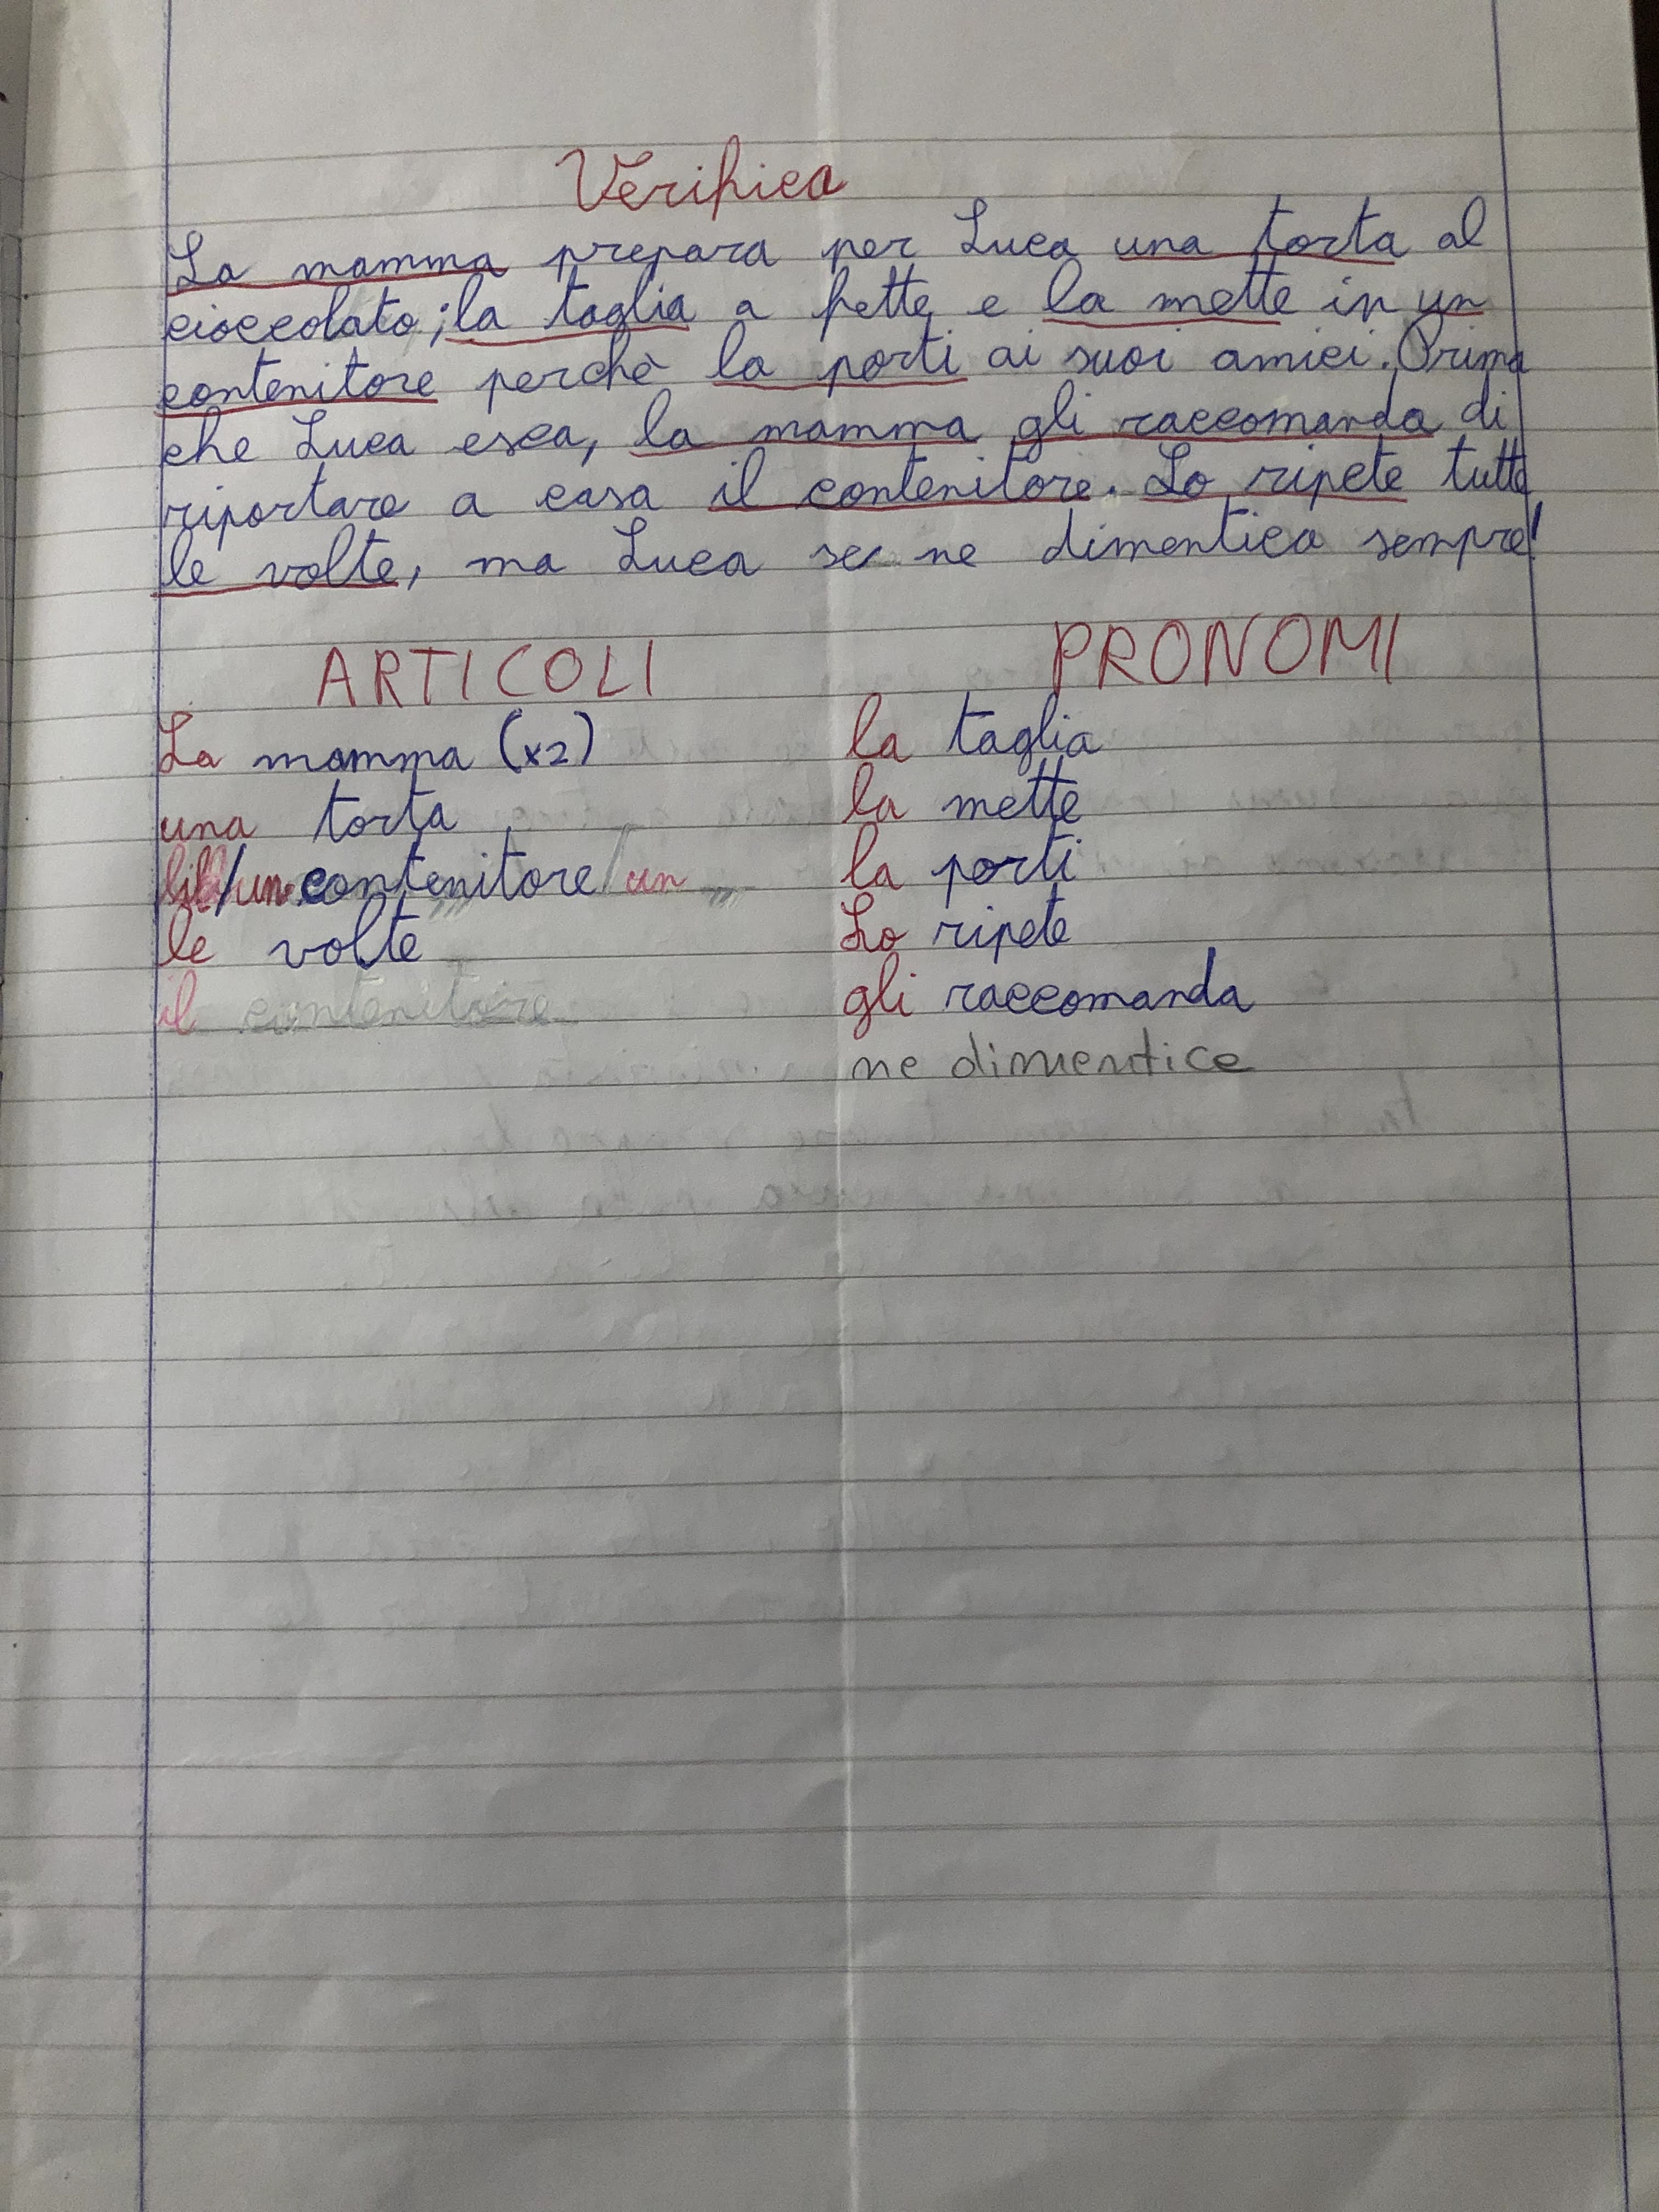 Verifica
La mamma prepara per Luca una torta al
cioccolato; la taglia a fette e la mette in un
contenitore perchè la porti ai suoi amici. Prima
che Luca esca, la mamma gli raccomanda di
riportare a casa il contenitore. Lo ripete tutte
le volte, ma Luca se ne dimentica sempre!
ARTICOLI PRONOMI
La mamma (x2) la taglia
una torta la mette
il/un contenitore un la porti
le volte Lo ripete
il contenitore gli raccomanda
ne dimentica